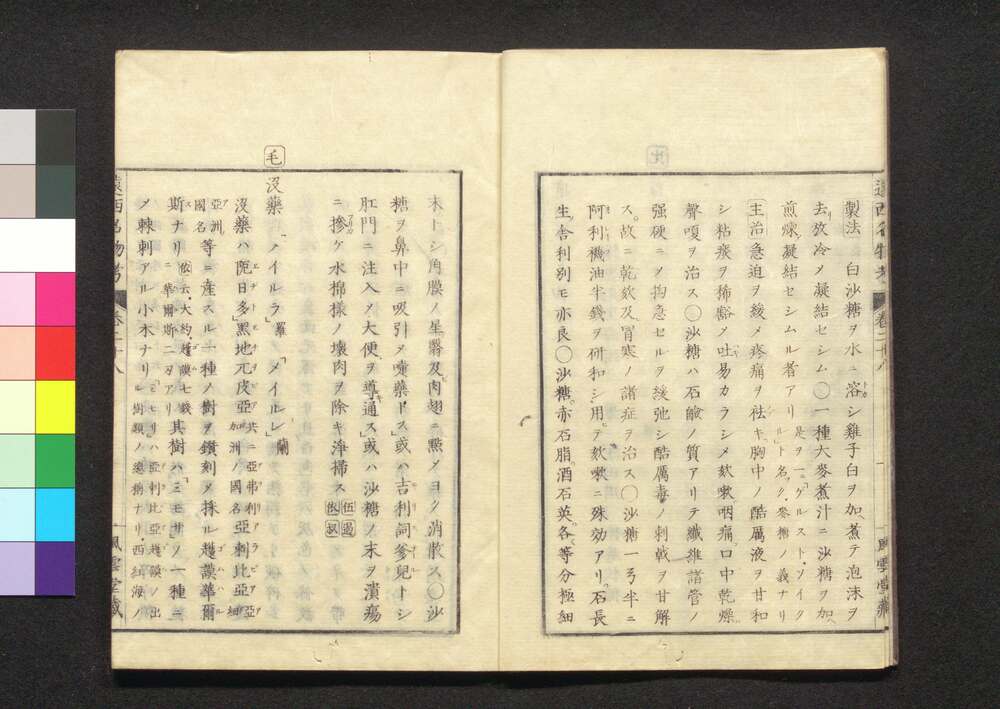 製法 白沙糖ヲ水ニ溶シ雞子白ヲ加ヘ煮テ泡沫ヲ
去リ放冷メ凝結セシム〇一種大麥煮汁ニ沙糖ヲ加ヘ
煎煉凝結セシムル者アリ是ヲ「ゲルストソイクル」ト名ク麥糖ノ義ナリ
主治急迫ヲ緩メ疼痛ヲ袪キ胸中ノ酷厲液ヲ甘和
シ粘痰ヲ稀豁メ吐易カラシメ欬嗽咽痛口中乾燥
聲嗄ヲ治ス〇沙糖ハ石鹼ノ質アリテ纖維諸管ノ
强硬ニメ拘急セルヲ緩弛シ酷厲毒ノ刺戟ヲ甘解
ス故ニ乾欬及冒寒ノ諸症ヲ治ス〇沙糖一弓半ニ
阿利襪油半錢ヲ研和シ用テ欬嗽ニ殊効アリ石長
生舍利別モ亦良〇沙糖赤石脂酒石英各等分極細
末トシ角膜ノ星翳及肉翅ニ點メヨク消散ス〇沙
糖ヲ鼻中ニ吸引メ嚏藥トス或ハ吉利詞爹兒トシ
肛門ニ注入メ大便ヲ導通ス或ハ沙糖ノ末ヲ潰瘍
ニ摻ケ水棉樣ノ壞肉ヲ除キ淨掃ス
毛
沒藥 「ノイルラ」羅 「メイルレ」蘭
沒藥ハ阨日多「黑地兀皮亞共ニ亞弗利加洲ノ國名亞剌比亞亞細亞洲ノ國名
等ニ產スル一種ノ樹ヲ鑽刻メ採ル趕謨華爾
斯ナリ其樹ハ「ミモサ」ノ一種ニ
メ棘刺アル小木ナリ
遠西名物考 卷二十八
風雲堂藏